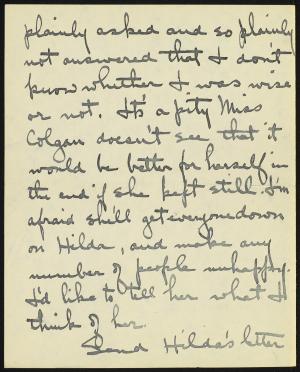 plainly asked and so plainly
not answered that I don't
know whether I was wise
or not. It's a pity Miss
Colgan doesn't see that it
would be better for herself in
the end if she kept still. I'm
afraid she'll get everyone down
on Hilda, and make any
number of people unhappy.
I'd like to tell her what I
think of her.
Send Hilda's letter